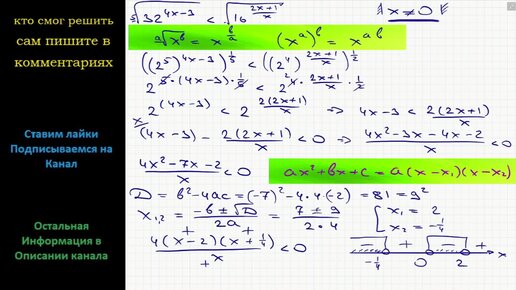 кто смог решить
сам пишите в
комментариях
Ставим лайки
Подписываемся на
Канал
Остальная
Информация в
Описании канала
⁵√32^(4x-3) < √16^((2x+1)/x) x ≠ 0
ᵃ√x^b = x^(b/a) (x^a)^b = x^(ab)
((2^5)^(4x-3))^(1/5) < ((2^4)^((2x+1)/x))^(1/2)
2^(5·(4x-3)·1/5) < 2^(4·(2x+1)/x·1/2)
2^(4x-3) < 2^(2(2x+1)/x) ⇒ 4x-3 < 2(2x+1)/x
x(4x-3)/x - 2(2x+1)/x < 0 ⇒ (4x²-3x-4x-2)/x < 0
(4x²-7x-2)/x < 0 ax²+bx+c = a(x-x₁)(x-x₂)
D = b²-4ac = (-7)²-4·4·(-2) = 81 = 9²
x₁,₂ = (-b±√D)/2a = (7±9)/(2·4) { x₁ = 2 x₂ = -1/4
4(x-2)(x+1/4)/x < 0
- + - + x
-1/4 0 2